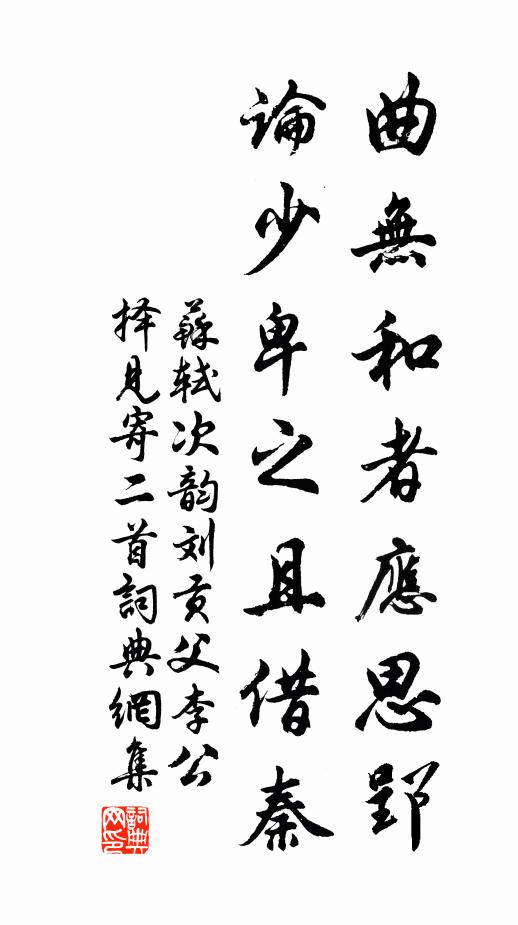 曲無和者應思郢
論少卑之且借秦
蘇軾次韵刘贡父李公
择見寄二首詞典網集
詞典网印